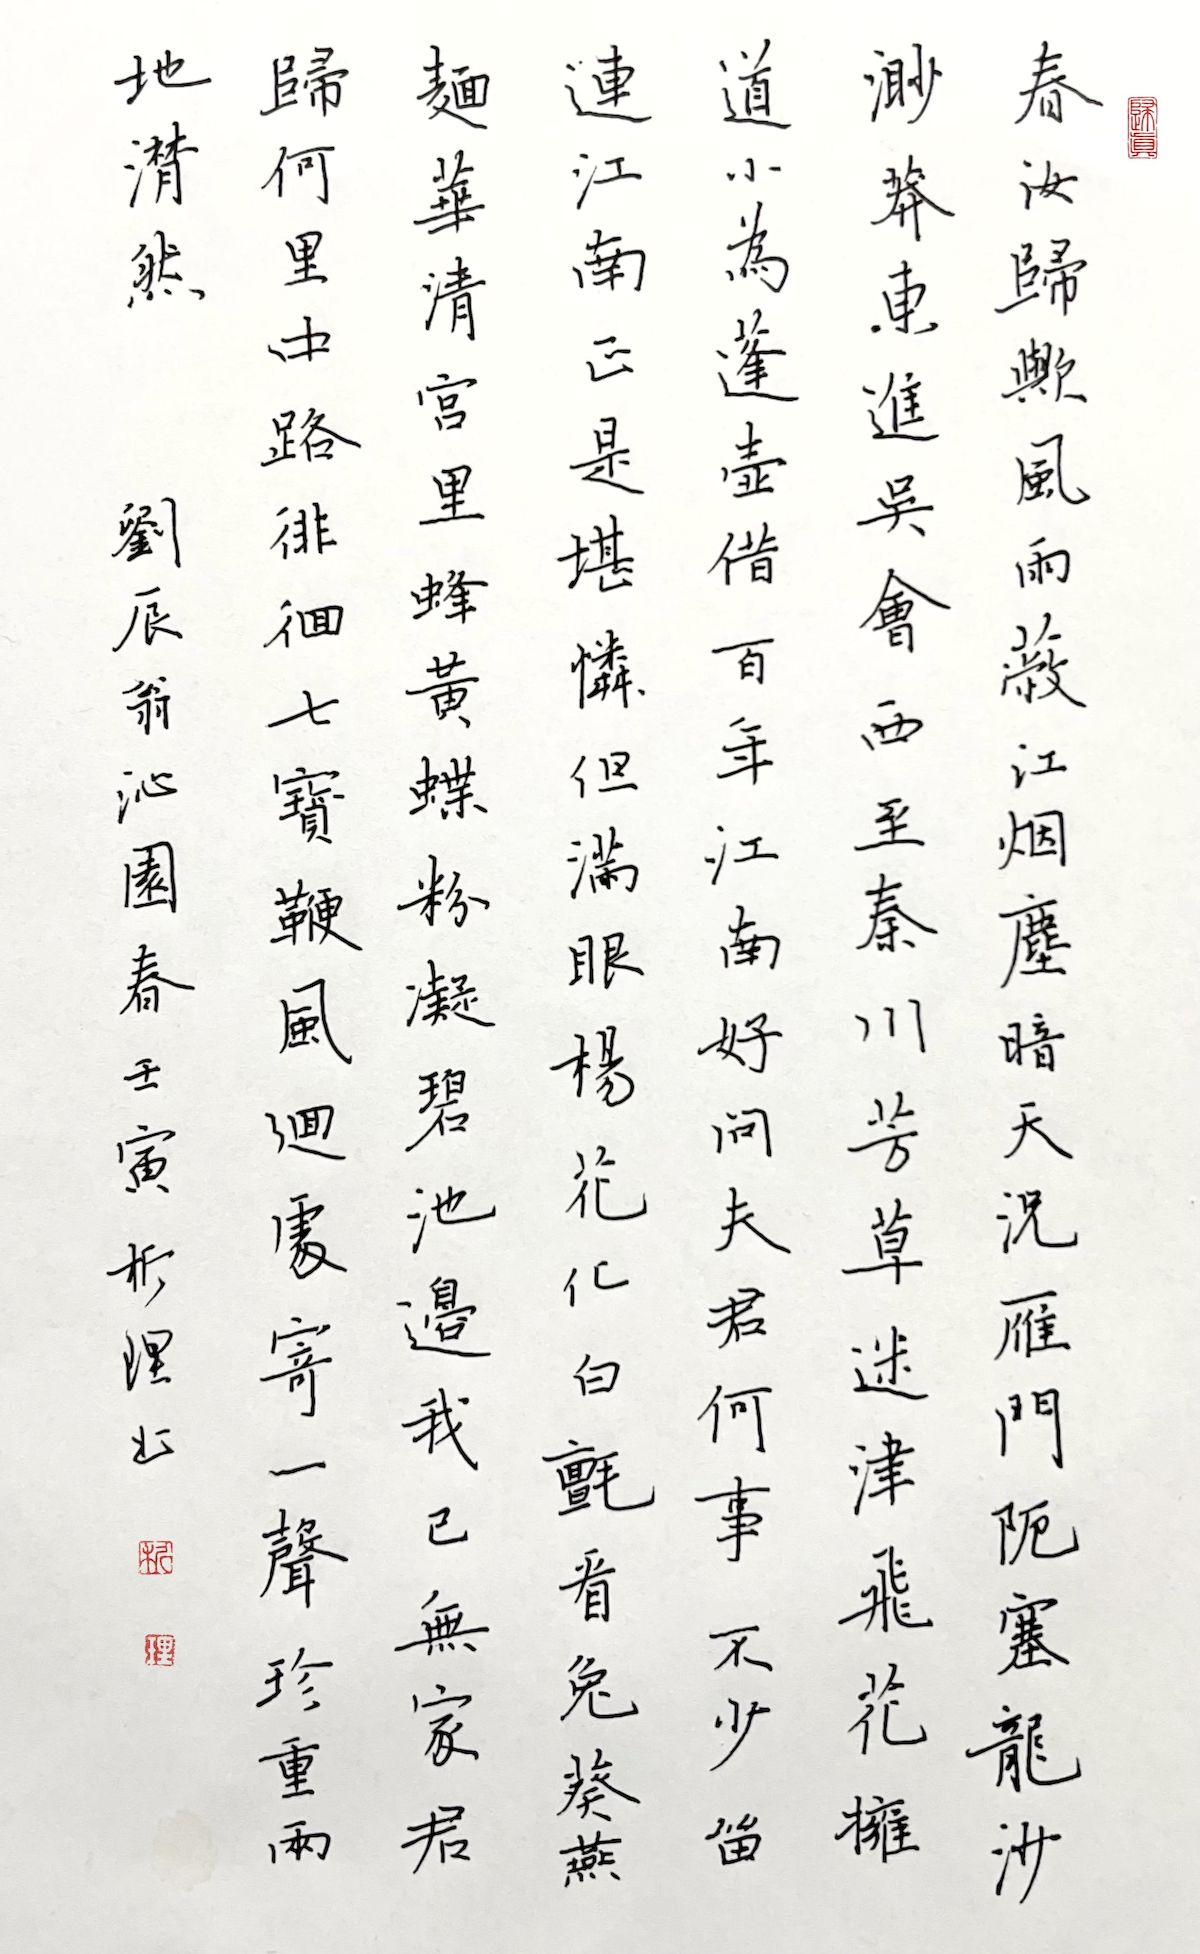 歸真
春汝歸歟風雨蔽江烟塵暗天況雁門阨塞龍沙
渺莽東進吳會西至秦川芳草迷津飛花擁
道小為蓬壺借百年江南好問夫君何事不少留
連江南正是堪憐但滿眼楊花化白氈看兔葵燕
麵華清宮里蜂黃蝶粉凝碧池邊我已無家君
歸何里中路徘徊七寶鞭風迴處寄一聲珍重兩
地潸然 劉辰翁沁園春壬寅析理书
析
理